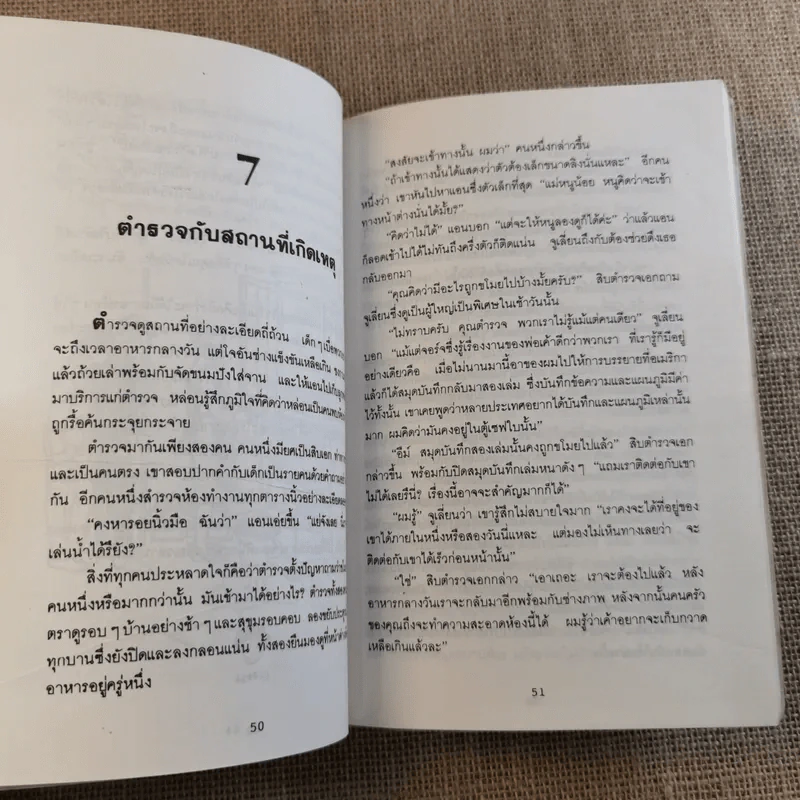 7
ตำรวจกับสถานที่เกิดเหตุ
ตำรวจดูสถานที่อย่างละเอียดถี่ถ้วน เด็กๆ
จะถึงเวลาอาหารกลางวัน แต่ใจอันช่างแข็งขันเหลือเกิน
แล้วถ้วยเล่าพร้อมกับจัดขนมปังใส่จาน และให้แอนไป
มาบริการแก่ตำรวจ หล่อนรู้สึกภูมิใจที่คิดว่าหล่อนเป็นคน
ถูกรื้อค้นกระจุยกระจาย
ตำรวจมากันเพียงสองคน คนหนึ่งมียศเป็นสิบเอก
และเป็นคนตรง เขาสอบปากคำกับเด็กเป็นรายคนด้วยคำถาม
กัน อีกคนหนึ่งสำรวจห้องทำงานทุกตารางนิ้วอย่างละเอียด
“คงหารอยนิ้วมือ ฉันว่า” แอนเอ่ยขึ้น “แย่จังเลย
เล่นน้ำได้รึยัง?”
สิ่งที่ทุกคนประหลาดใจก็คือว่าตำรวจตั้งปัญหาถามว่า
คนหนึ่งหรือมากกว่านั้น มันเข้ามาได้อย่างไร? ตำรวจทั้งสอง
ตราดูรอบๆ บ้านอย่างช้าๆ และสุขุมรอบคอบ ลองขยับ
ทุกบานซึ่งยังปิดและลงกลอนแน่น ทั้งสองยืนมองดูที่หน้าต่าง
อาหารอยู่ครู่หนึ่ง
50
“สงสัยจะเข้าทางนั้น ผมว่า” คนหนึ่งกล่าวขึ้น
“ถ้าเข้าทางนั้นได้แสดงว่าตัวต้องเล็กขนาดลิงนั่นแหละ” อีกคน
หนึ่งว่า เขาหันไปหาแอนซึ่งตัวเล็กที่สุด “แม่หนูน้อย หนูคิดว่าจะเข้า
ทางหน้าต่างนั่นได้มั้ย?”
“คิดว่าไม่ได้” แอนบอก “แต่จะให้หนูลองดูก็ได้ค่ะ” ว่าแล้วแอน
ก็ลอดเข้าไปได้ไม่ทันถึงครึ่งตัวก็ติดแน่น จูเลี่ยนถึงกับต้องช่วยดึงเธอ
กลับออกมา
“คุณคิดว่ามีอะไรถูกขโมยไปบ้างมั้ยครับ?” สิบตำรวจเอกถาม
จูเลี่ยนซึ่งดูเป็นผู้ใหญ่เป็นพิเศษในเช้าวันนั้น
“ไม่ทราบครับ คุณตำรวจ พวกเราไม่รู้แม้แต่คนเดียว” จูเลี่ยน
บอก “แม้แต่จอร์จซึ่งรู้เรื่องงานของพ่อเค้าดีกว่าพวกเรา ที่เรารู้ก็มีอยู่
อย่างเดียวคือ เมื่อไม่นานมานี้อาของผมไปให้การบรรยายที่อเมริกา
แล้วก็ได้สมุดบันทึกกลับมาสองเล่ม ซึ่งบันทึกข้อความและแผนภูมิมีค่า
ไว้ทั้งนั้น เขาเคยพูดว่าหลายประเทศอยากได้บันทึกและแผนภูมิเหล่านั้น
มาก ผมคิดว่ามันคงอยู่ในตู้เซฟใบนั้น”
“อืม์ สมุดบันทึกสองเล่มนั้นคงถูกขโมยไปแล้ว” สิบตำรวจเอก
กล่าวขึ้น พร้อมกับปิดสมุดบันทึกเล่มหนาดังๆ “แถมเราติดต่อกับเขา
ไม่ได้เลยรึนี่? เรื่องนี้อาจจะสำคัญมากก็ได้”
“ผมรู้” จูเลี่ยนว่า เขารู้สึกไม่สบายใจมาก “เราคงจะได้ที่อยู่ของ
เขาได้ภายในหนึ่งหรือสองวันนี่แหละ แต่มองไม่เห็นทางเลยว่า จะ
ติดต่อกับเขาได้เร็วก่อนหน้านั้น”
“ใช่” สิบตำรวจเอกกล่าว “เอาเถอะ เราจะต้องไปแล้ว หลัง
อาหารกลางวันเราจะกลับมาอีกพร้อมกับช่างภาพ หลังจากนั้นคนครัว
ของคุณถึงจะทำความสะอาดห้องนี้ได้ ผมรู้ว่าเค้าอยากจะเก็บกวาด
เหลือเกินแล้วละ”
51